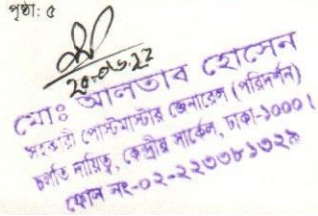 পৃষ্ঠা: ৫
২০.০৬.২২
মো: আলতাব হোসেন
সহকারী পোস্টমাস্টার জেনারেল (পরিদর্শন)
চলতি দায়িত্ব, কেন্দ্রীয় সার্কেল, ঢাকা-১০০০।
ফোন নং-০২-২২৩৩৮১৩২৯